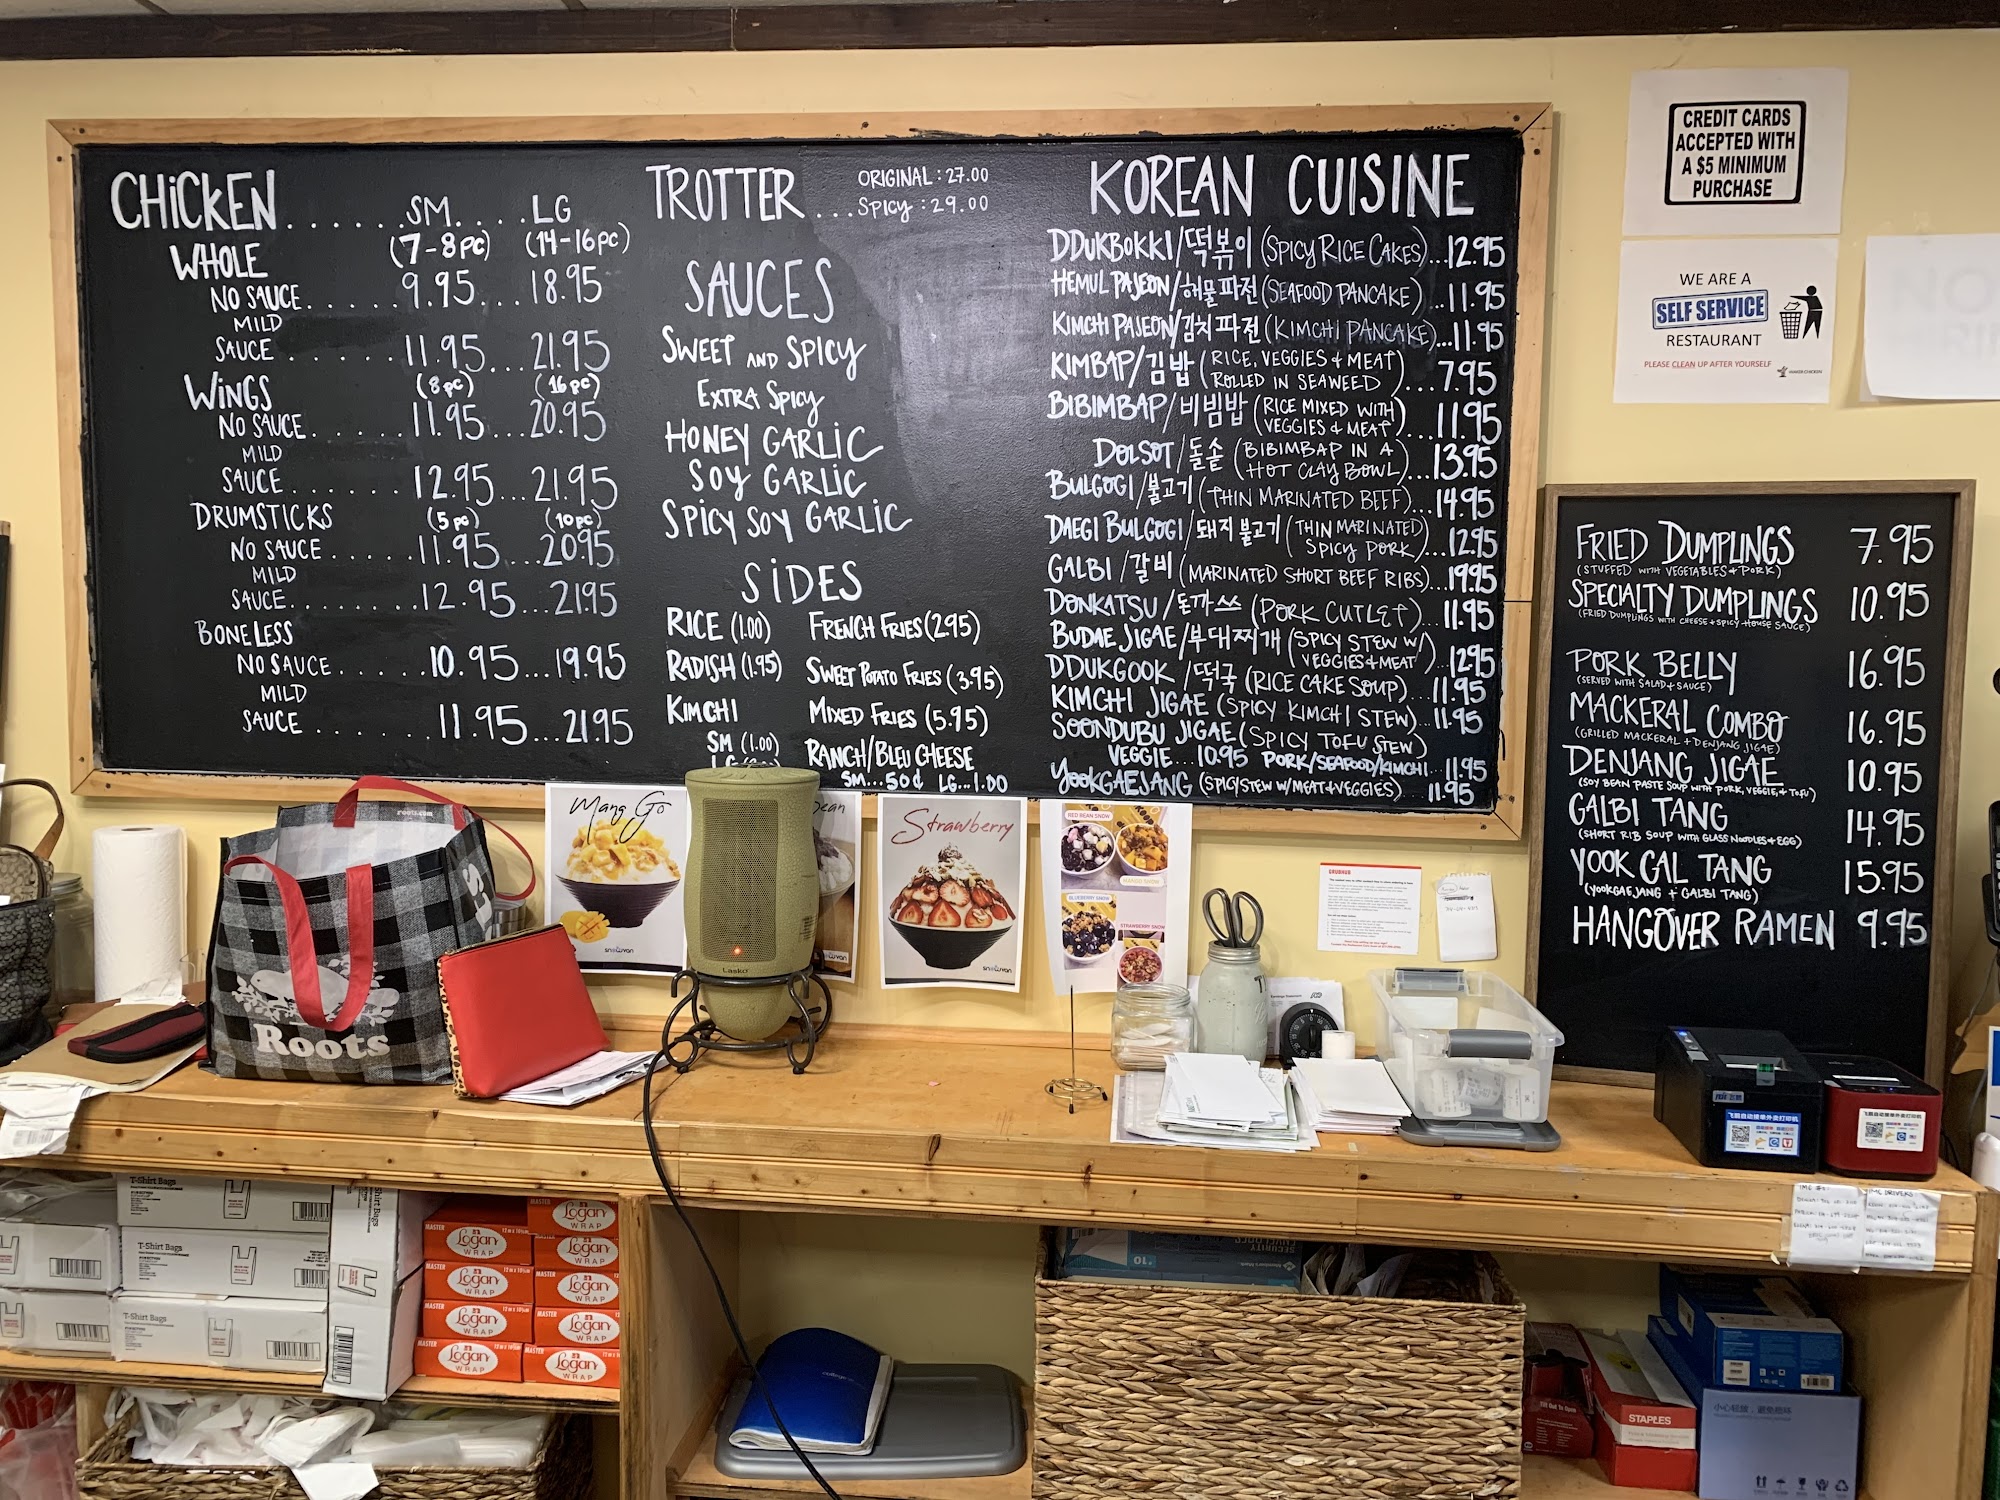 CHICKEN......SM....LG
(7-8pc) (14-16pc)
WHOLE
NO SAUCE......9.95...18.95
MILD
SAUCE.......11.95...21.95
WINGS (8pc) (16pc)
NO SAUCE......11.95...20.95
MILD
SAUCE......12.95...21.95
DRUMSTICKS (5pc) (10pc)
NO SAUCE......11.95...20.95
MILD
SAUCE........12.95...21.95
BONELESS
NO SAUCE......10.95...19.95
MILD
SAUCE.......11.95...21.95
TROTTER...
ORIGINAL: 27.00
SPICY: 29.00
SAUCES
SWEET AND SPICY
EXTRA SPICY
HONEY GARLIC
SOY GARLIC
SPICY SOY GARLIC
SIDES
RICE (1.00)
RADISH (1.95)
KIMCHI
SM (1.00)
FRENCH FRIES (2.95)
SWEET POTATO FRIES (3.95)
MIXED FRIES (5.95)
RANCH/BLEU CHEESE
SM...50¢ LG...1.00
KOREAN CUISINE
DDUKBOKKI/떡볶이 (SPICY RICE CAKES)...12.95
HEMUL PAJEON/해물파전 (SEAFOOD PANCAKE)...11.95
KIMCHI PAJEON/김치파전 (KIMCHI PANCAKE)...11.95
KIMBAP/김밥 (RICE, VEGGIES + MEAT
ROLLED IN SEAWEED)...7.95
BIBIMBAP/비빔밥 (RICE MIXED WITH
VEGGIES + MEAT)...11.95
DOLSOT/돌솥 (BIBIMBAP IN A
HOT CLAY BOWL)...13.95
BULGOGI/불고기 (THIN MARINATED BEEF)...14.95
DAEGI BULGOGI/돼지불고기 (THIN MARINATED
SPICY PORK)...12.95
GALBI/갈비 (MARINATED SHORT BEEF RIBS)...19.95
DONKATSU/돈까쓰 (PORK CUTLET)...11.95
BUDAE JIGAE/부대찌개 (SPICY STEW W/
VEGGIES+MEAT)...12.95
DDUKGOOK/떡국 (RICE CAKE SOUP)...11.95
KIMCHI JIGAE (SPICY KIMCHI STEW)...11.95
SOONDUBU JIGAE (SPICY TOFU STEW)
VEGGIE...10.95 PORK/SEAFOOD/KIMCHI...11.95
YOOKGAEJANG (SPICY STEW W/MEAT+VEGGIES) 11.95
CREDIT CARDS
ACCEPTED WITH
A $5 MINIMUM
PURCHASE
WE ARE A
SELF SERVICE
RESTAURANT
PLEASE CLEAN UP AFTER YOURSELF
FRIED DUMPLINGS 7.95
(STUFFED WITH VEGETABLES + PORK)
SPECIALTY DUMPLINGS 10.95
(FRIED DUMPLINGS WITH CHEESE + SPICY HOUSE SAUCE)
PORK BELLY 16.95
(SERVED WITH SALAD + SAUCE)
MACKERAL COMBO 16.95
(GRILLED MACKERAL + DENJANG JIGAE)
DENJANG JIGAE 10.95
(SOY BEAN PASTE SOUP WITH PORK, VEGGIE, + TOFU)
GALBI TANG 14.95
(SHORT RIB SOUP WITH GLASS NOODLES + EGG)
YOOK GAL TANG 15.95
(YOOKGAEJANG + GALBI TANG)
HANGOVER RAMEN 9.95
roots.com
Roots
Mang Go
snowvan
Lasko
Strawberry
snowvan
RED BEAN SNOW
MANGO SNOW
BLUEBERRY SNOW
STRAWBERRY SNOW
GRUBHUB
飞鹅自动接单外卖打印机
飞鹅自动接单外卖打印机
T-Shirt Bags
T-Shirt Bags
T-Shirt Bags
T-Shirt Bags
MASTER Logan WRAP
MASTER Logan WRAP
MASTER Logan WRAP
MASTER Logan WRAP
Logan WRAP
Logan WRAP
Logan WRAP
Logan WRAP
Logan WRAP
SECURITY
10
STAPLES
小心轻放，避免挤压